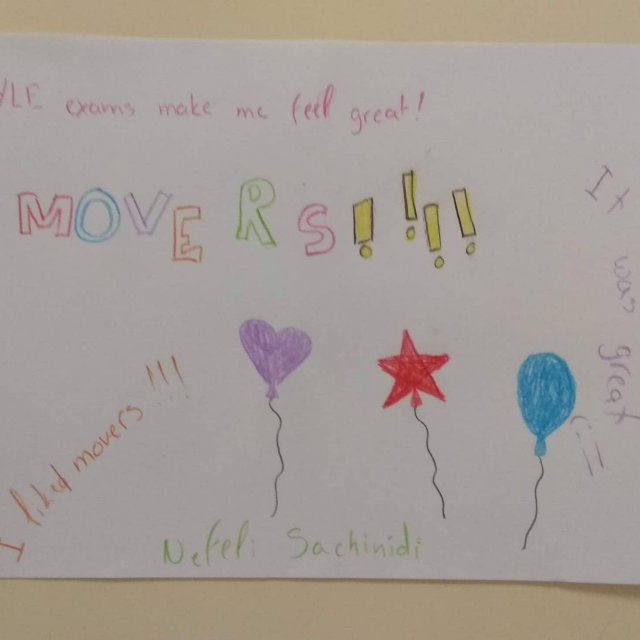 YLE exams make me feel great!
MOVERS!!!!
It was great
I liked movers!!!
Nefeli Sachinidi